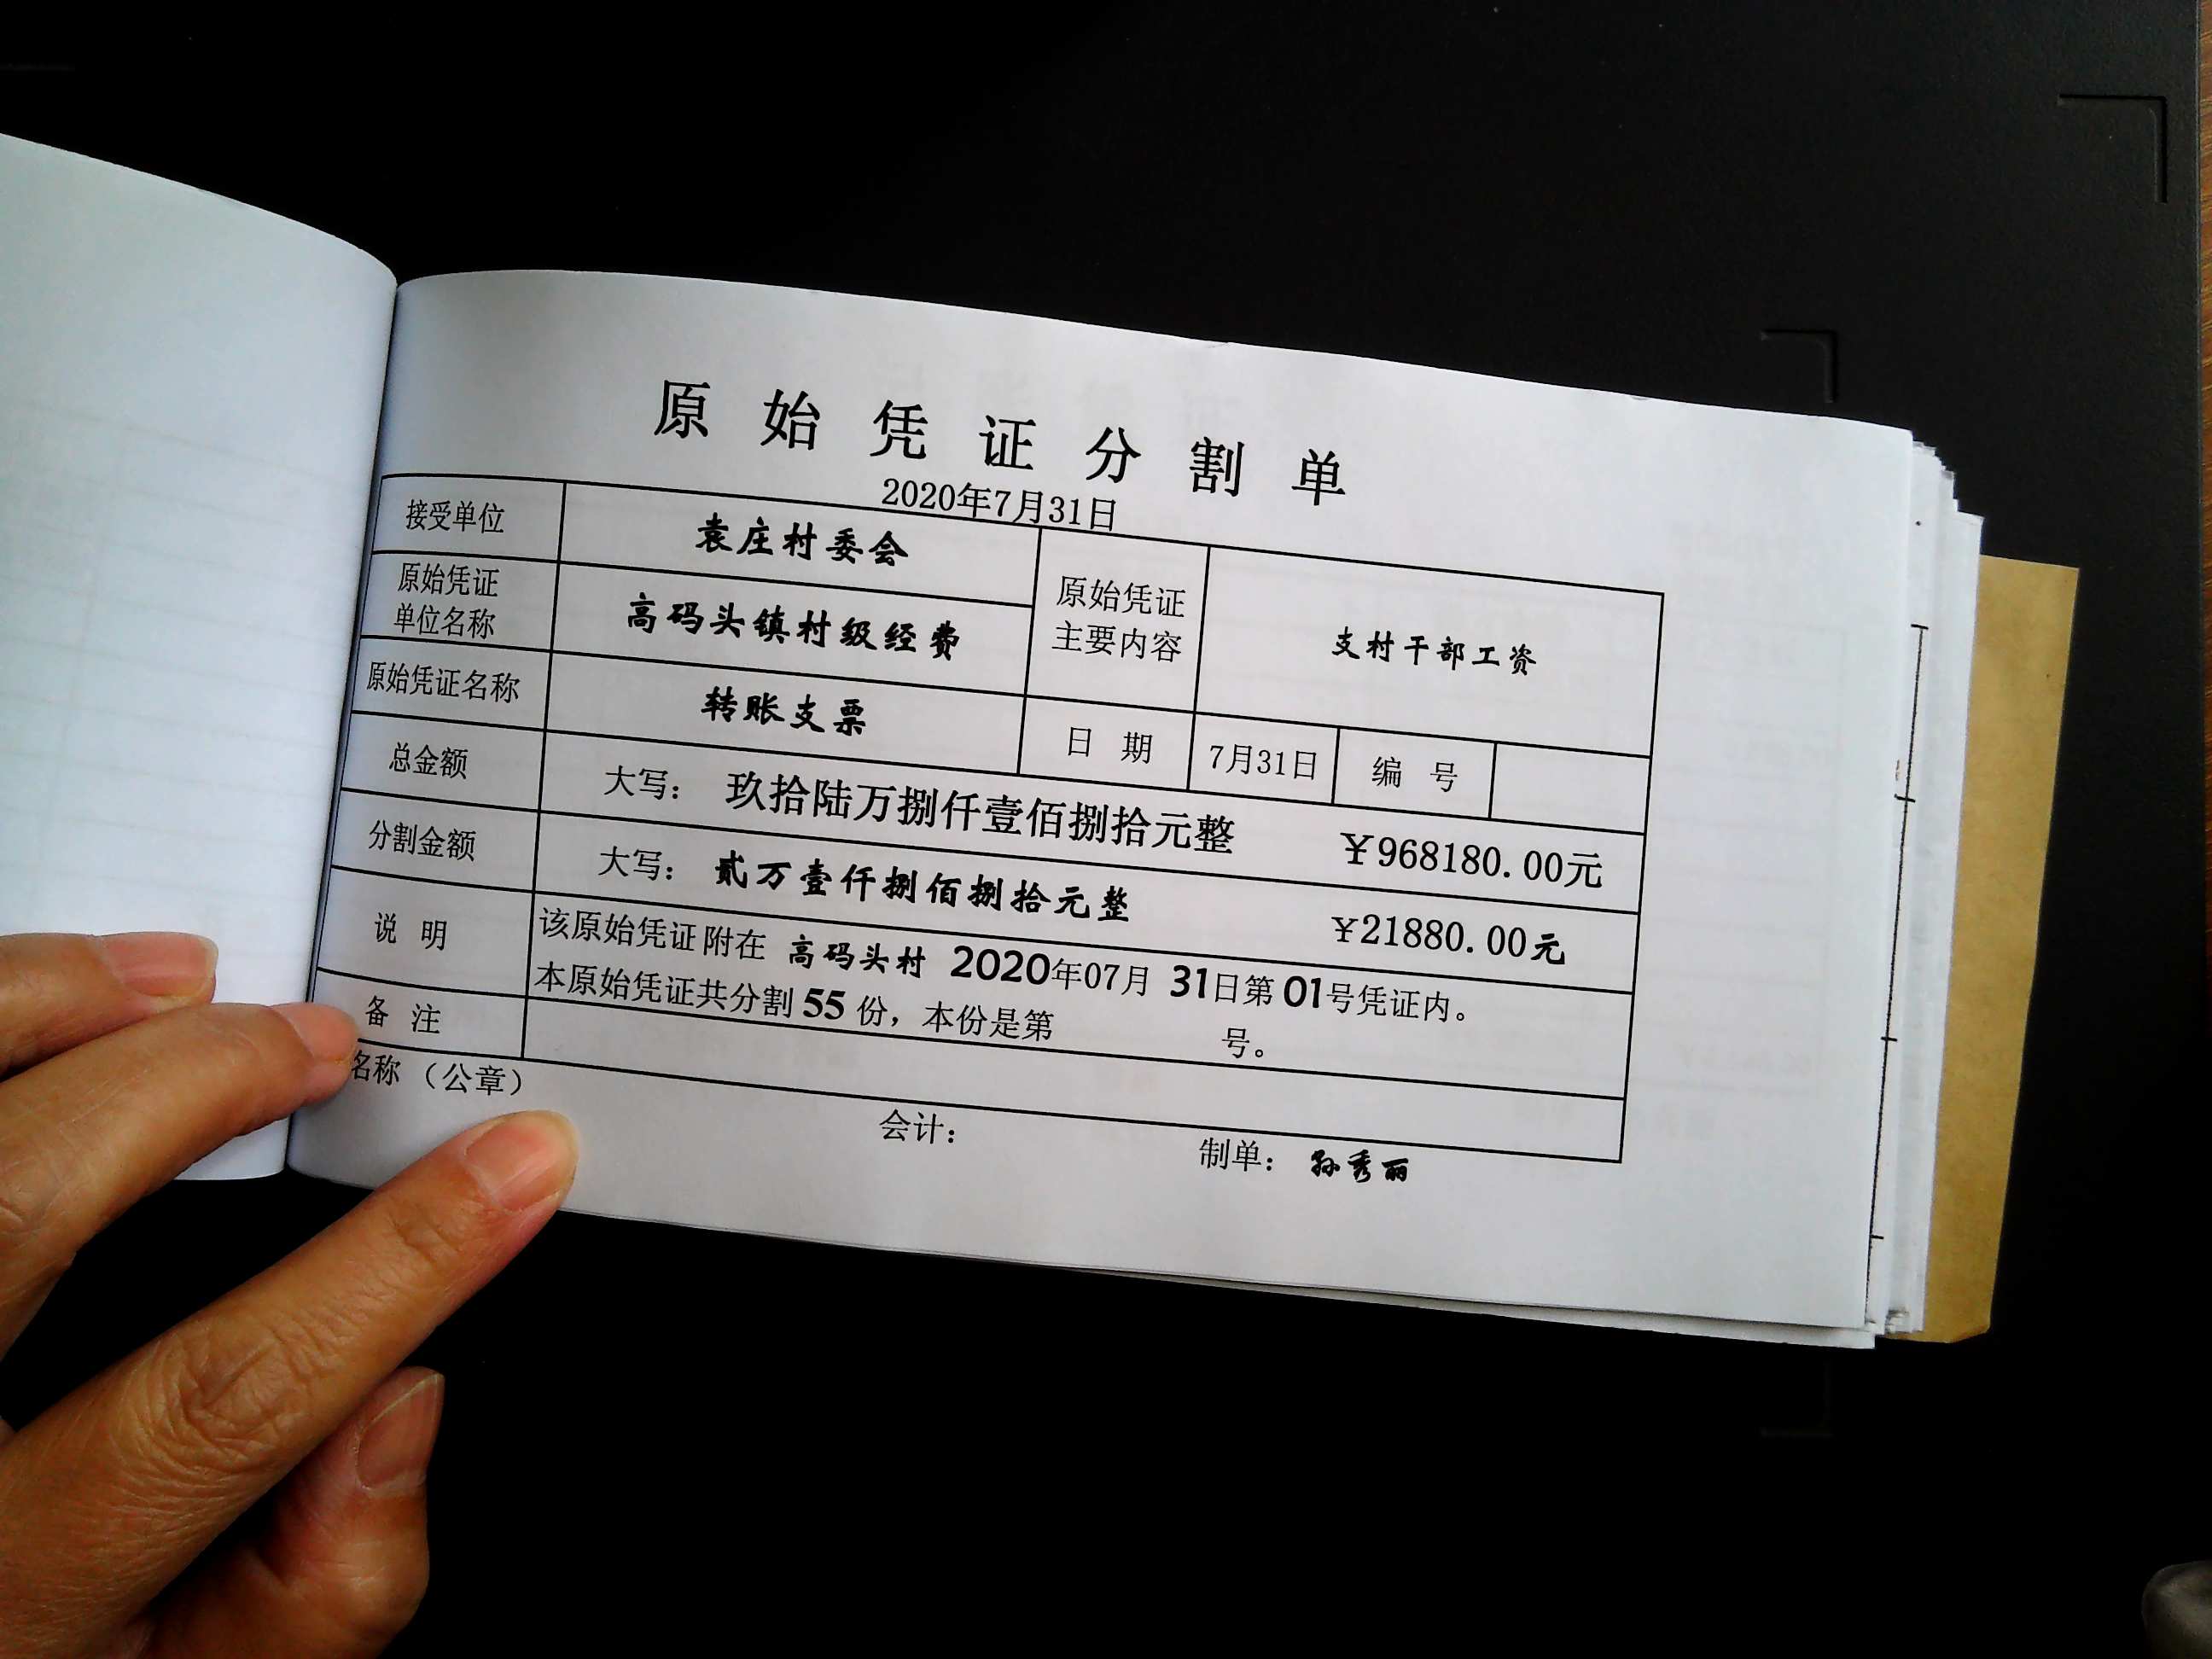 原始凭证分割单
2020年7月31日
接受单位 袁庄村委会
原始凭证单位名称 高码头镇村级经费
原始凭证主要内容 支村干部工资
原始凭证名称 转账支票
日期 7月31日 编号
总金额 大写：玖拾陆万捌仟壹佰捌拾元整 ￥968180.00元
分割金额 大写：贰万壹仟捌佰捌拾元整 ￥21880.00元
说明 该原始凭证附在 高码头村 2020年07月 31日第 01号凭证内。
本原始凭证共分割 55 份，本份是第 号。
备注
名称（公章） 会计： 制单：孙秀丽